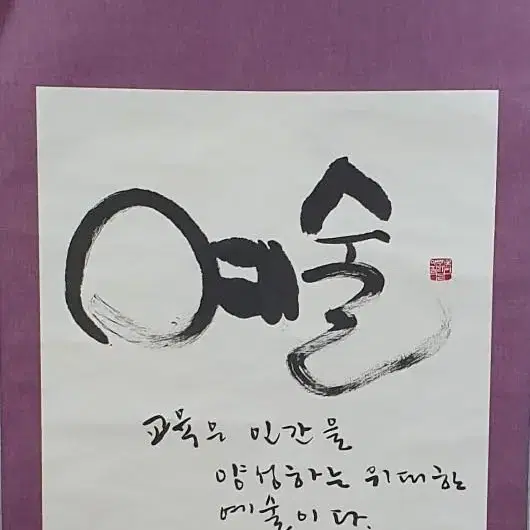 예술
교육은 인간을
양성하는 위대한
예술이다